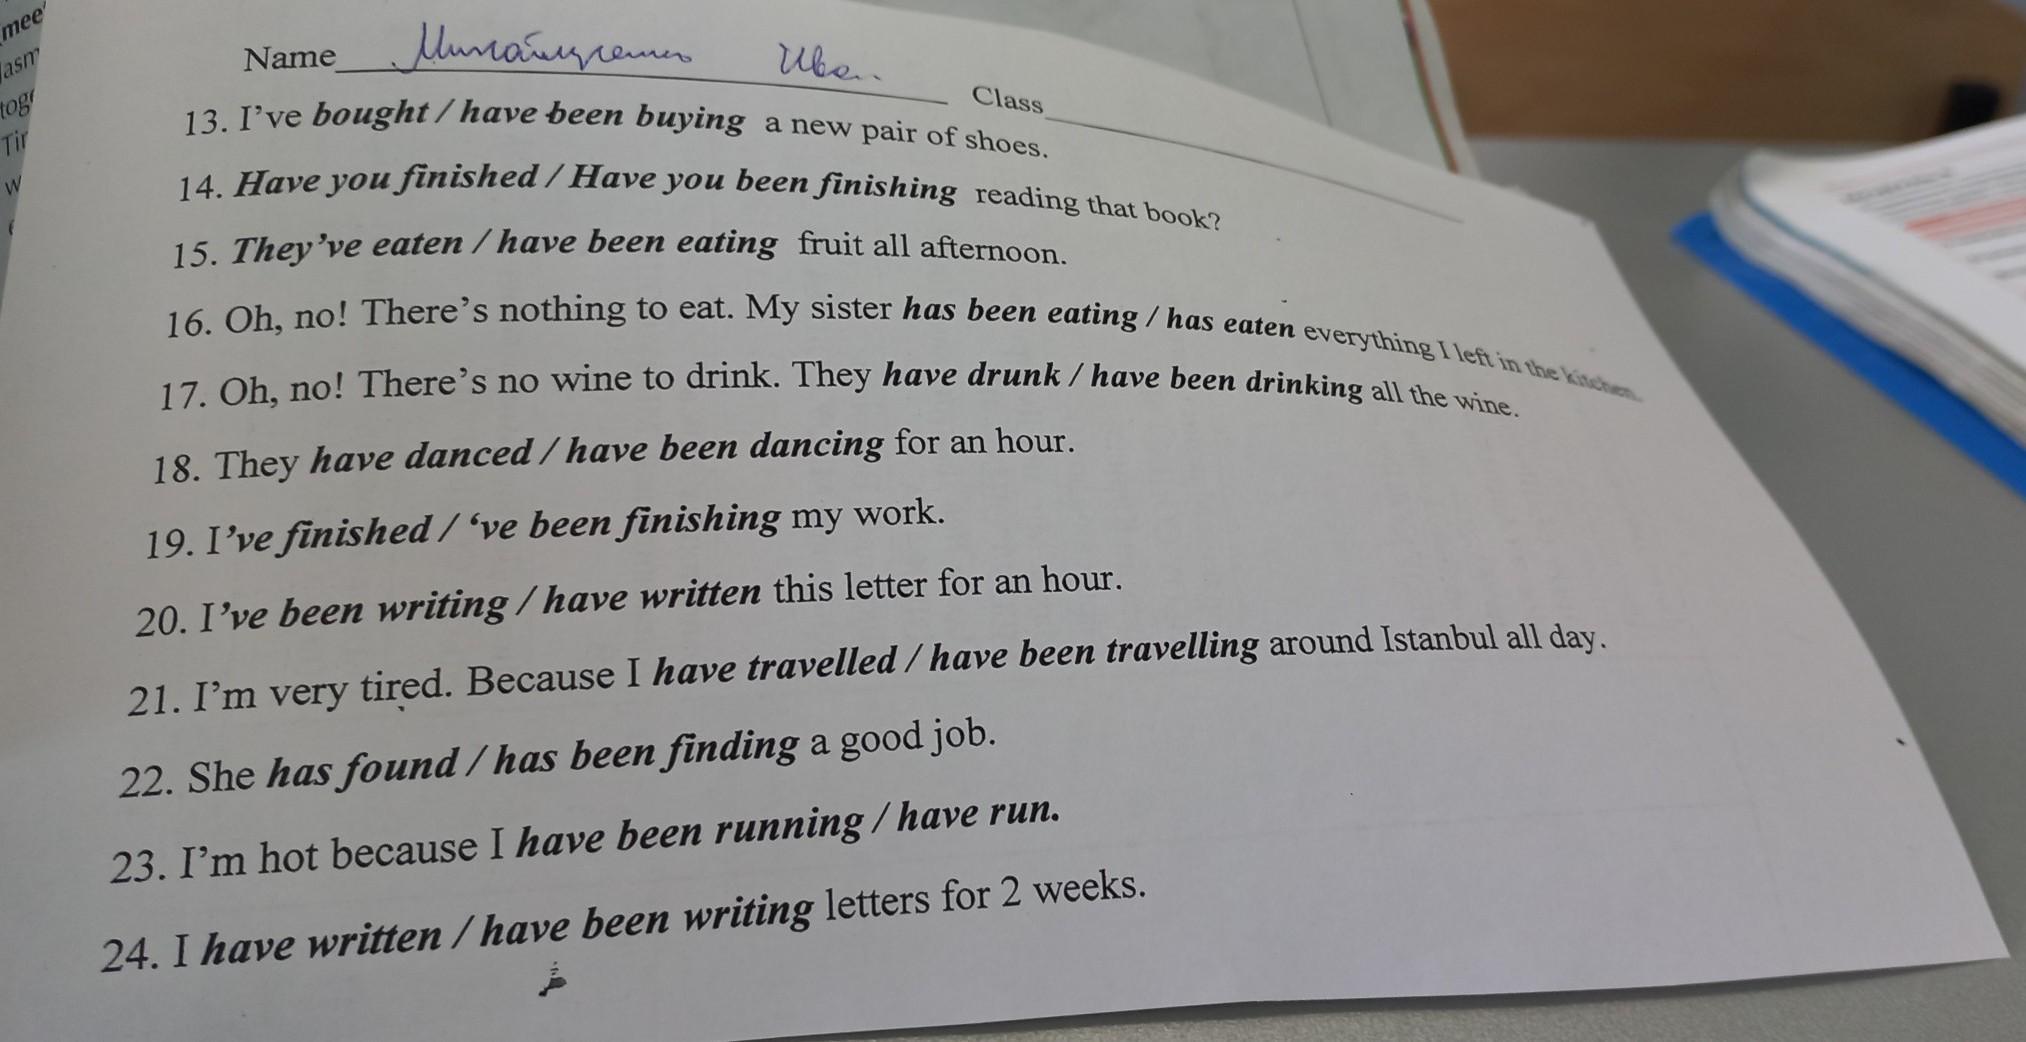 mee
asm
toge
Tir
w
Name Иван
Class
13. I've bought / have been buying a new pair of shoes.
14. Have you finished / Have you been finishing reading that book?
15. They've eaten / have been eating fruit all afternoon.
16. Oh, no! There's nothing to eat. My sister has been eating / has eaten everything I left in the kitchen.
17. Oh, no! There's no wine to drink. They have drunk / have been drinking all the wine.
18. They have danced / have been dancing for an hour.
19. I've finished / 've been finishing my work.
20. I've been writing / have written this letter for an hour.
21. I'm very tired. Because I have travelled / have been travelling around Istanbul all day.
22. She has found / has been finding a good job.
23. I'm hot because I have been running / have run.
24. I have written / have been writing letters for 2 weeks.